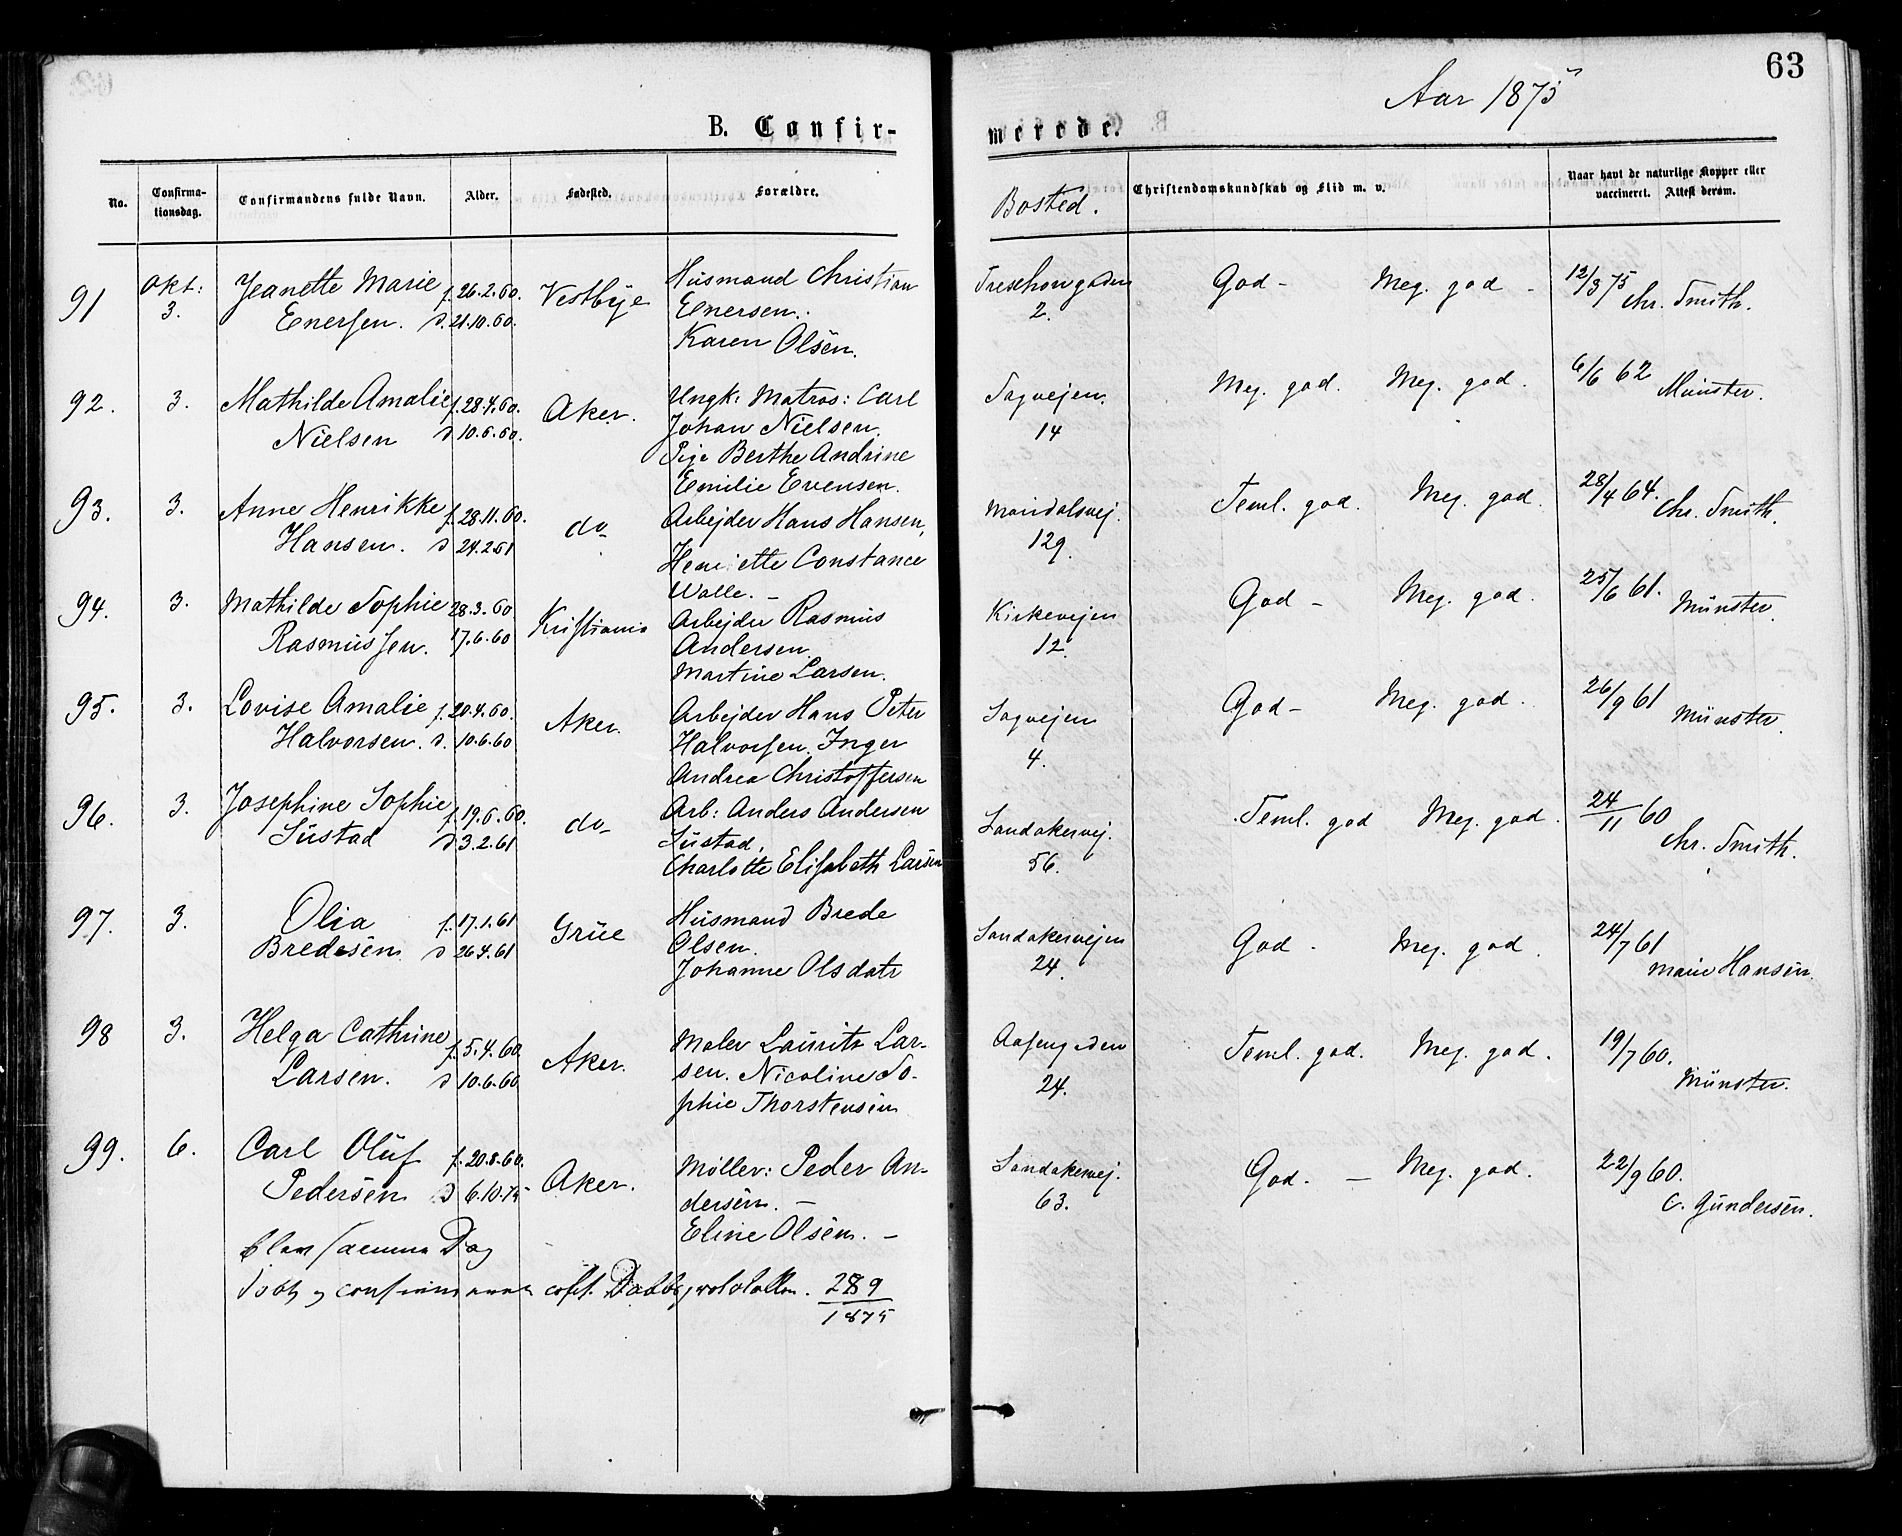 63
Aar 1875
B. Confir-
merede.
No.
Confirma-
tionsdag.
Confirmandens fulde Navn.
Alder.
Fødested.
Forældre.
Bosted.
Christendomskundskab og Flid m. v.
Naar havt de naturlige Kopper eller
vaccineret. Attest derom.
91 Okt: Jeanette Marie f. 26.2.60. Vestbye Husmand Christian Treschowgaden God - Meg. god - 12/3 75
3. Enersen. d. 21.10.60. Enersen. 2. Chr. Smith.
Karen Olsen.
92. 3. Mathilde Amalie f. 28.4.60. Aker. Ungk: Matros: Carl Sagvejen. Meg. god. Meg. god. 6/6 62
Nielsen d 10.6.60. Johan Nielsen. 14 Münster.
Pige Berthe Andrine
Emilie Evensen.
93. 3. Anne Henrikke f. 28.11.60. do Arbejder Hans Hansen, Maridalsvej. Teml. god. Meg. god. 28/4 64.
Hansen. d 24.2.61 Henriette Constance 129. Chr. Smith.
Walle. -
94. 3. Mathilde Sophie 28.3.60 Kristiania Arbejder Rasmus Kirkevejen God - Meg. god. 25/6 61.
Rasmussen. 17.6.60 Andersen. 12. Münster.
Martine Larsen.
95. 3. Lovise Amalie f. 20.4.60. Aker. Arbejder Hans Peter Sagvejen God - Meg. god. 26/9 61
Halvorsen. d. 10.6.60 Halvorsen. Inger 4. Münster.
Andrea Christoffersen
96. 3. Josephine Sophie f. 19.6.60. do Arb: Anders Andersen Sandakervej. Teml. god Meg. god. 24/11 60
Sustad d 3.2.61 Sustad, 56. Chr. Smith.
Charlotte Elisabeth Larsen
97. 3. Olia f. 17.1.61 Grue Husmand Brede Sandakervejen God - Meg. god. 24/7 61
Bredesen d 26.4.61 Olsen. 24. Marie Hansen.
Johanne Olsdatr
98 3. Helga Cathrine f. 5.4.60 Aker. Maler Lauritz Lar- Aasengaden Teml. god. Meg. god. 19/7 60.
Larsen. d 10.6.60 sen. Nicoline So- 24. Münster.
phie Thorstensen
99. 6. Carl Oluf f. 20.8.60. Aker. Møller: Peder An- Sandakervej. God. - Meg. god. 22/9 60.
Pedersen d 6.10.75 dersen. - 63. C. Gundersen.
Eline Olsen. -
blev samme Dag
døbt og confirmeret cfr. Daabsprotokollen. 289
1875